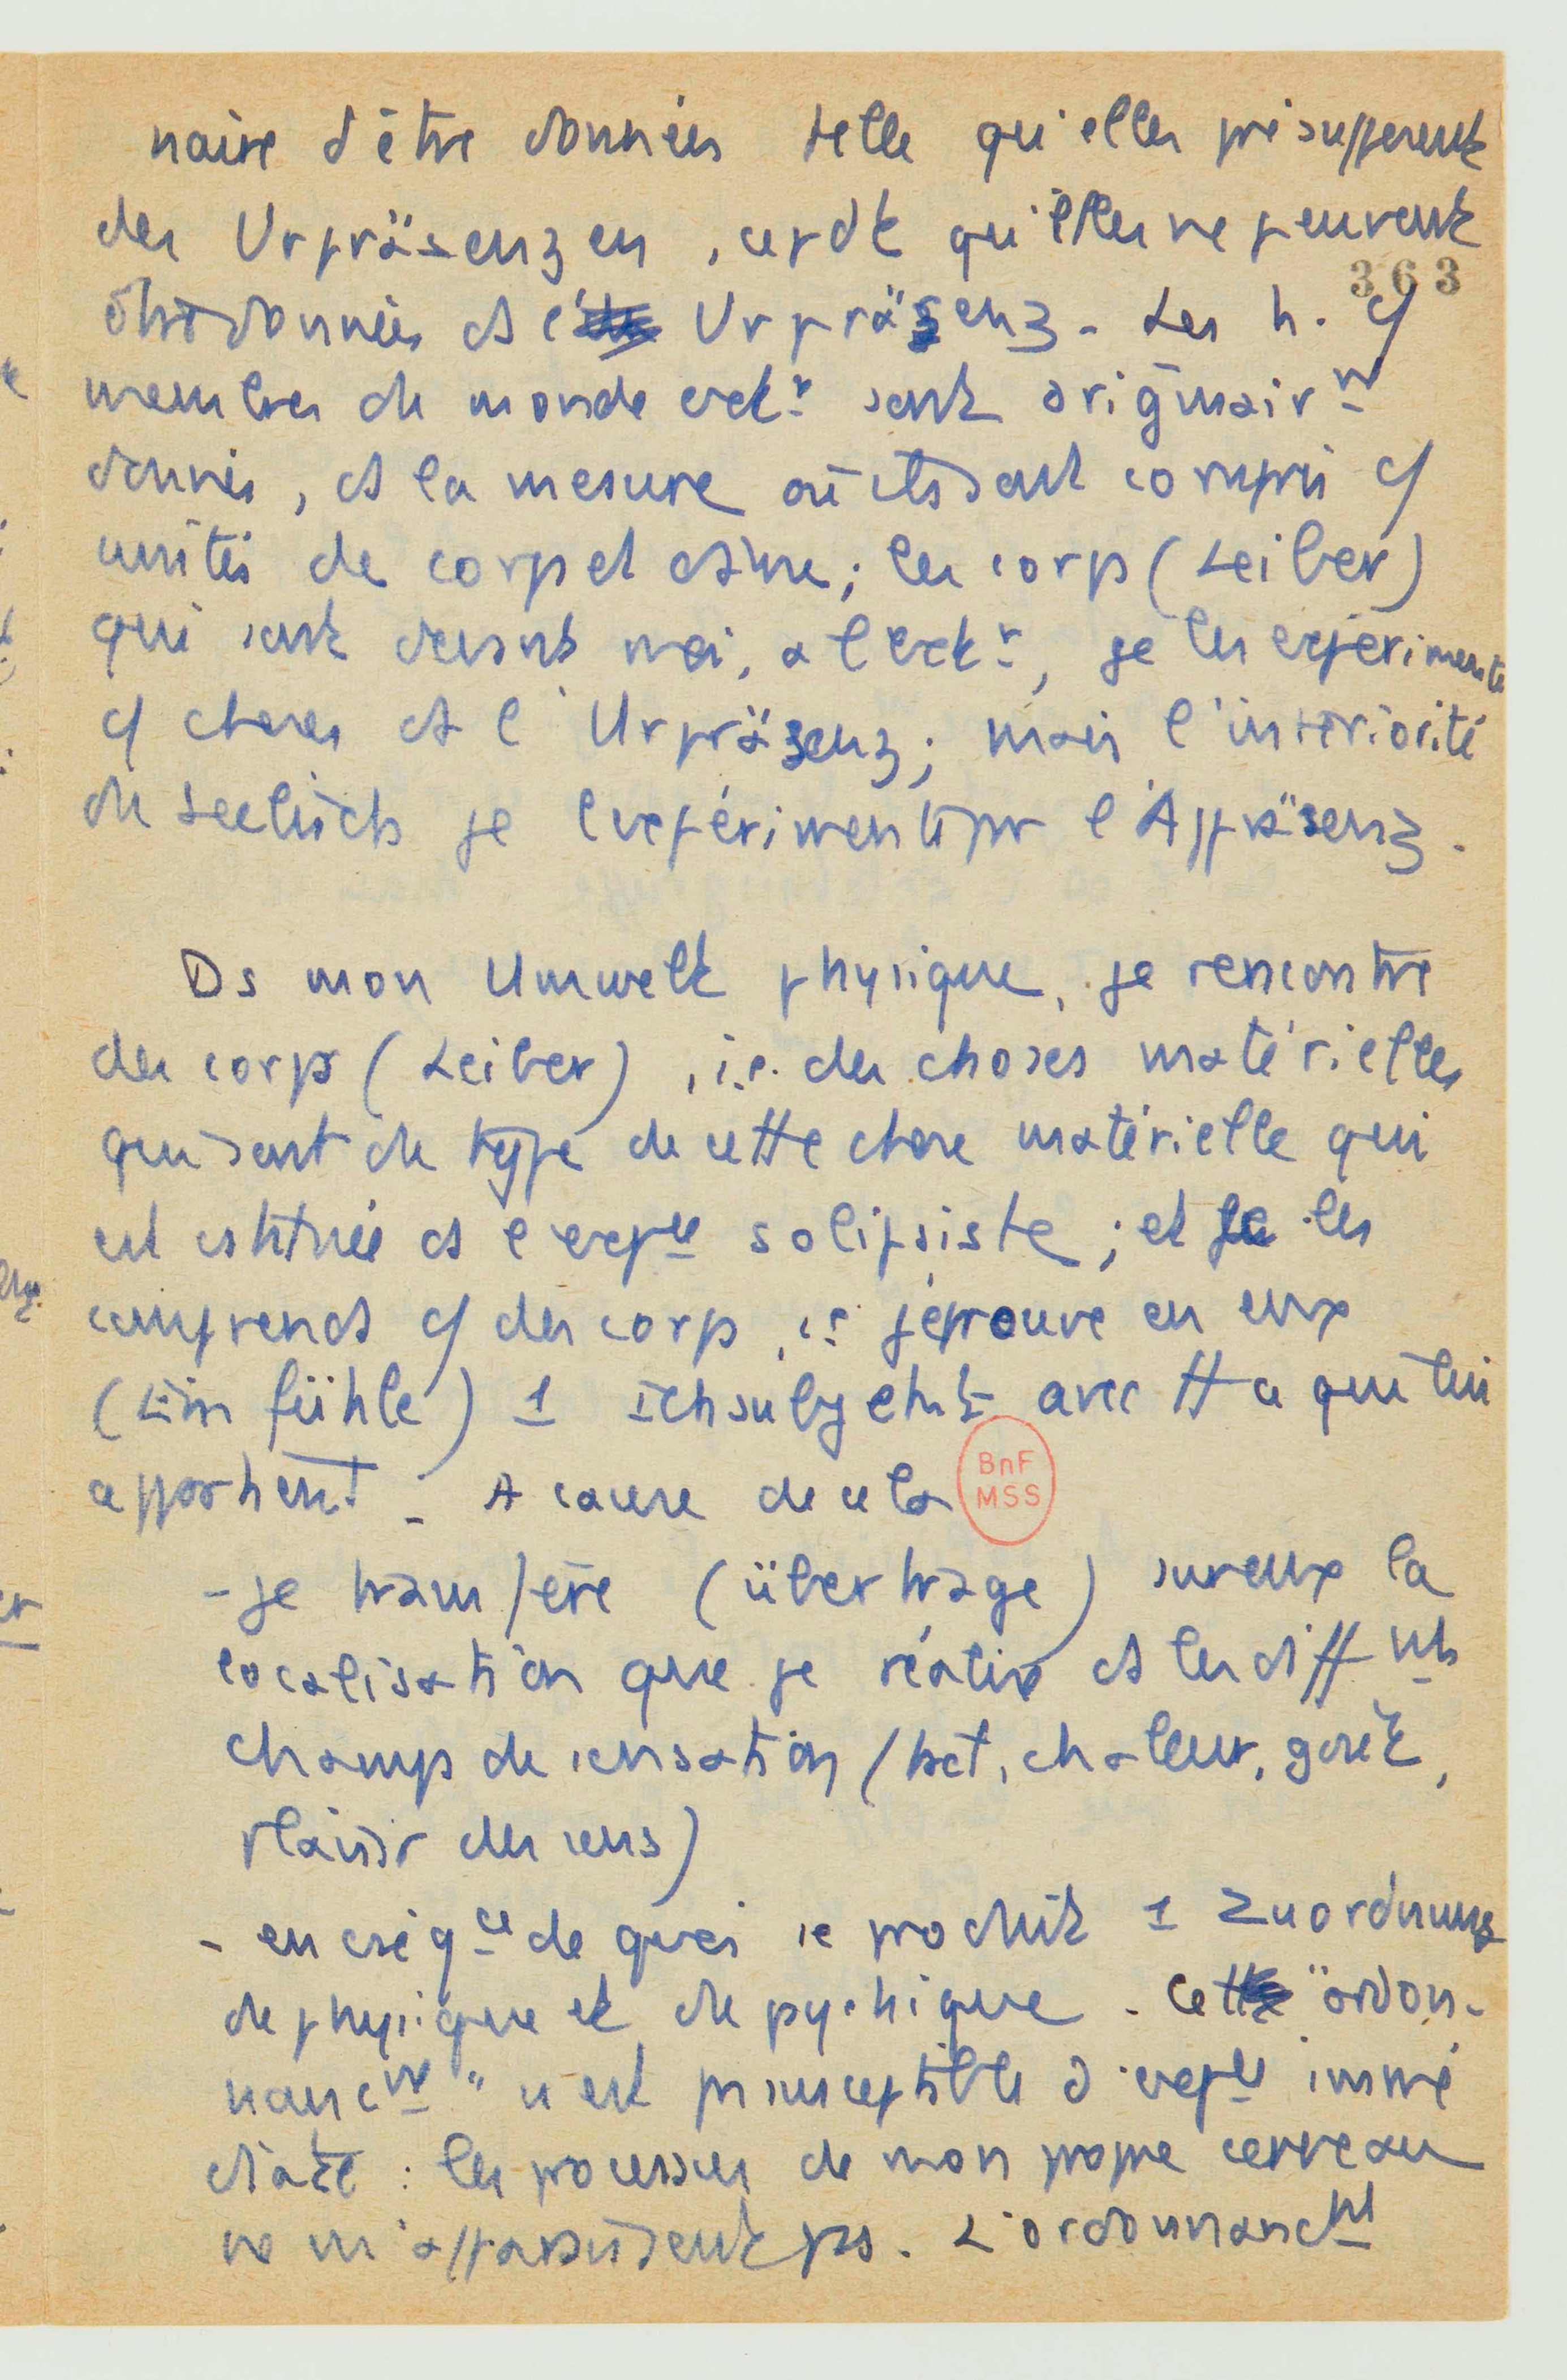 naire d'être données telle qu'elles présupposent
des Urpräsenzen, cepdt qu'elles ne peuvent
363
être données ds l' Urpräsenz. Les h. cf
membres du monde extr sont originairnt
donnés, ds la mesure où ils sont compris cf
unités de corps et d'âme ; les corps (Leiber)
qui sont devant moi, à l'extr, je les expérimente
cf choses ds l'Urpräsenz ; mais l'intériorité
du Seelisch je l'expérimente par l'Appräsenz.
Ds mon Umwelt physique, je rencontre
des corps (Leiber), i.e. des choses matérielles
qui sont du type de cette chose matérielle qui
est cstituée ds l'expce solipsiste ; et je les
comprends cf des corps, ie j'éprouve en eux
(einfühle) 1 Ichsubjekt avec tt ce qui lui
appartient. A cause de cela
BnF
MSS
- je transfère (übertrage) sur eux la
localisation que je réalise ds les diffnts
champs de sensation (tact, chaleur, goût,
plaisir des sens)
- en cséqce de quoi se produit 1 Zuordnung
de physique et de psychique. Cette "ordon-
nancnt" n'est pas susceptible d'expce immé
diate : les processus de mon propre cerveau
ne m'apparaissent pas. L'ordonnancnt